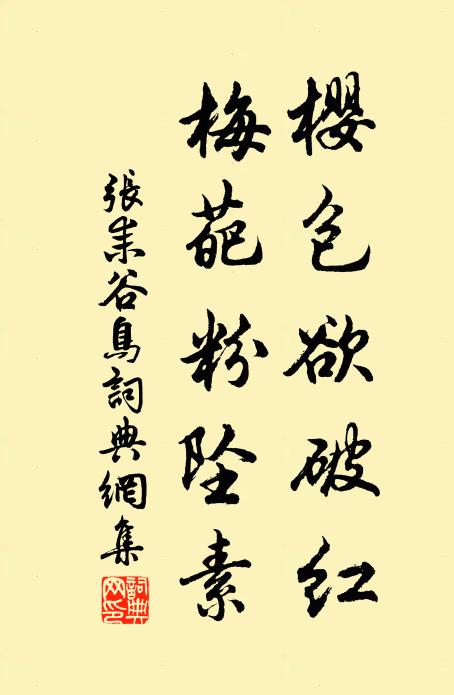 櫻包欲破紅
梅葩粉墜素
張耒谷鳥詞典網集
詞典网印